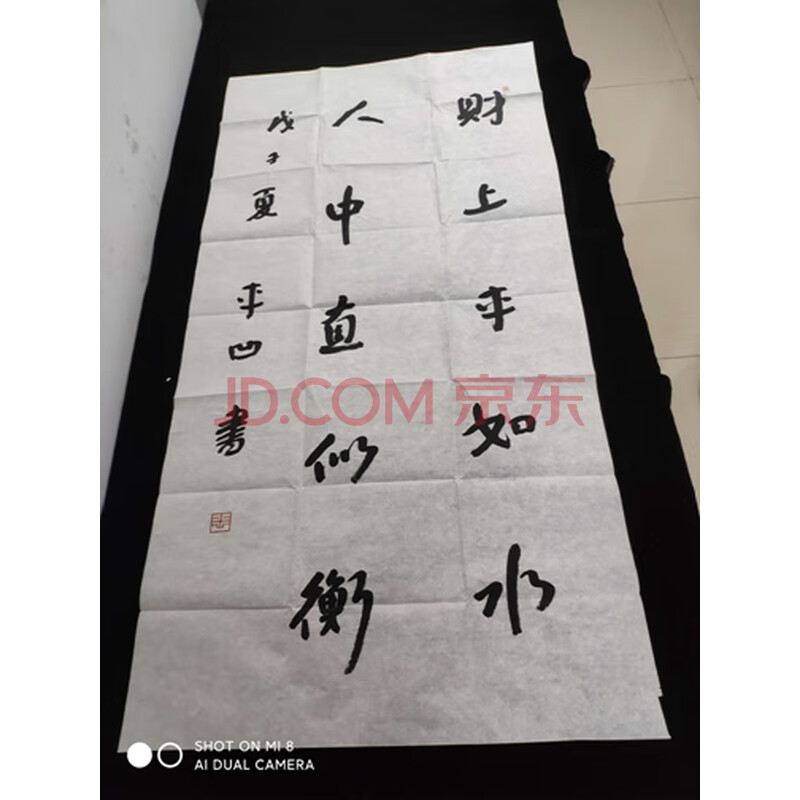 财上平如水
人中直似衡
戊子夏 平凹书
JD.COM 京东
SHOT ON MI 8
AI DUAL CAMERA